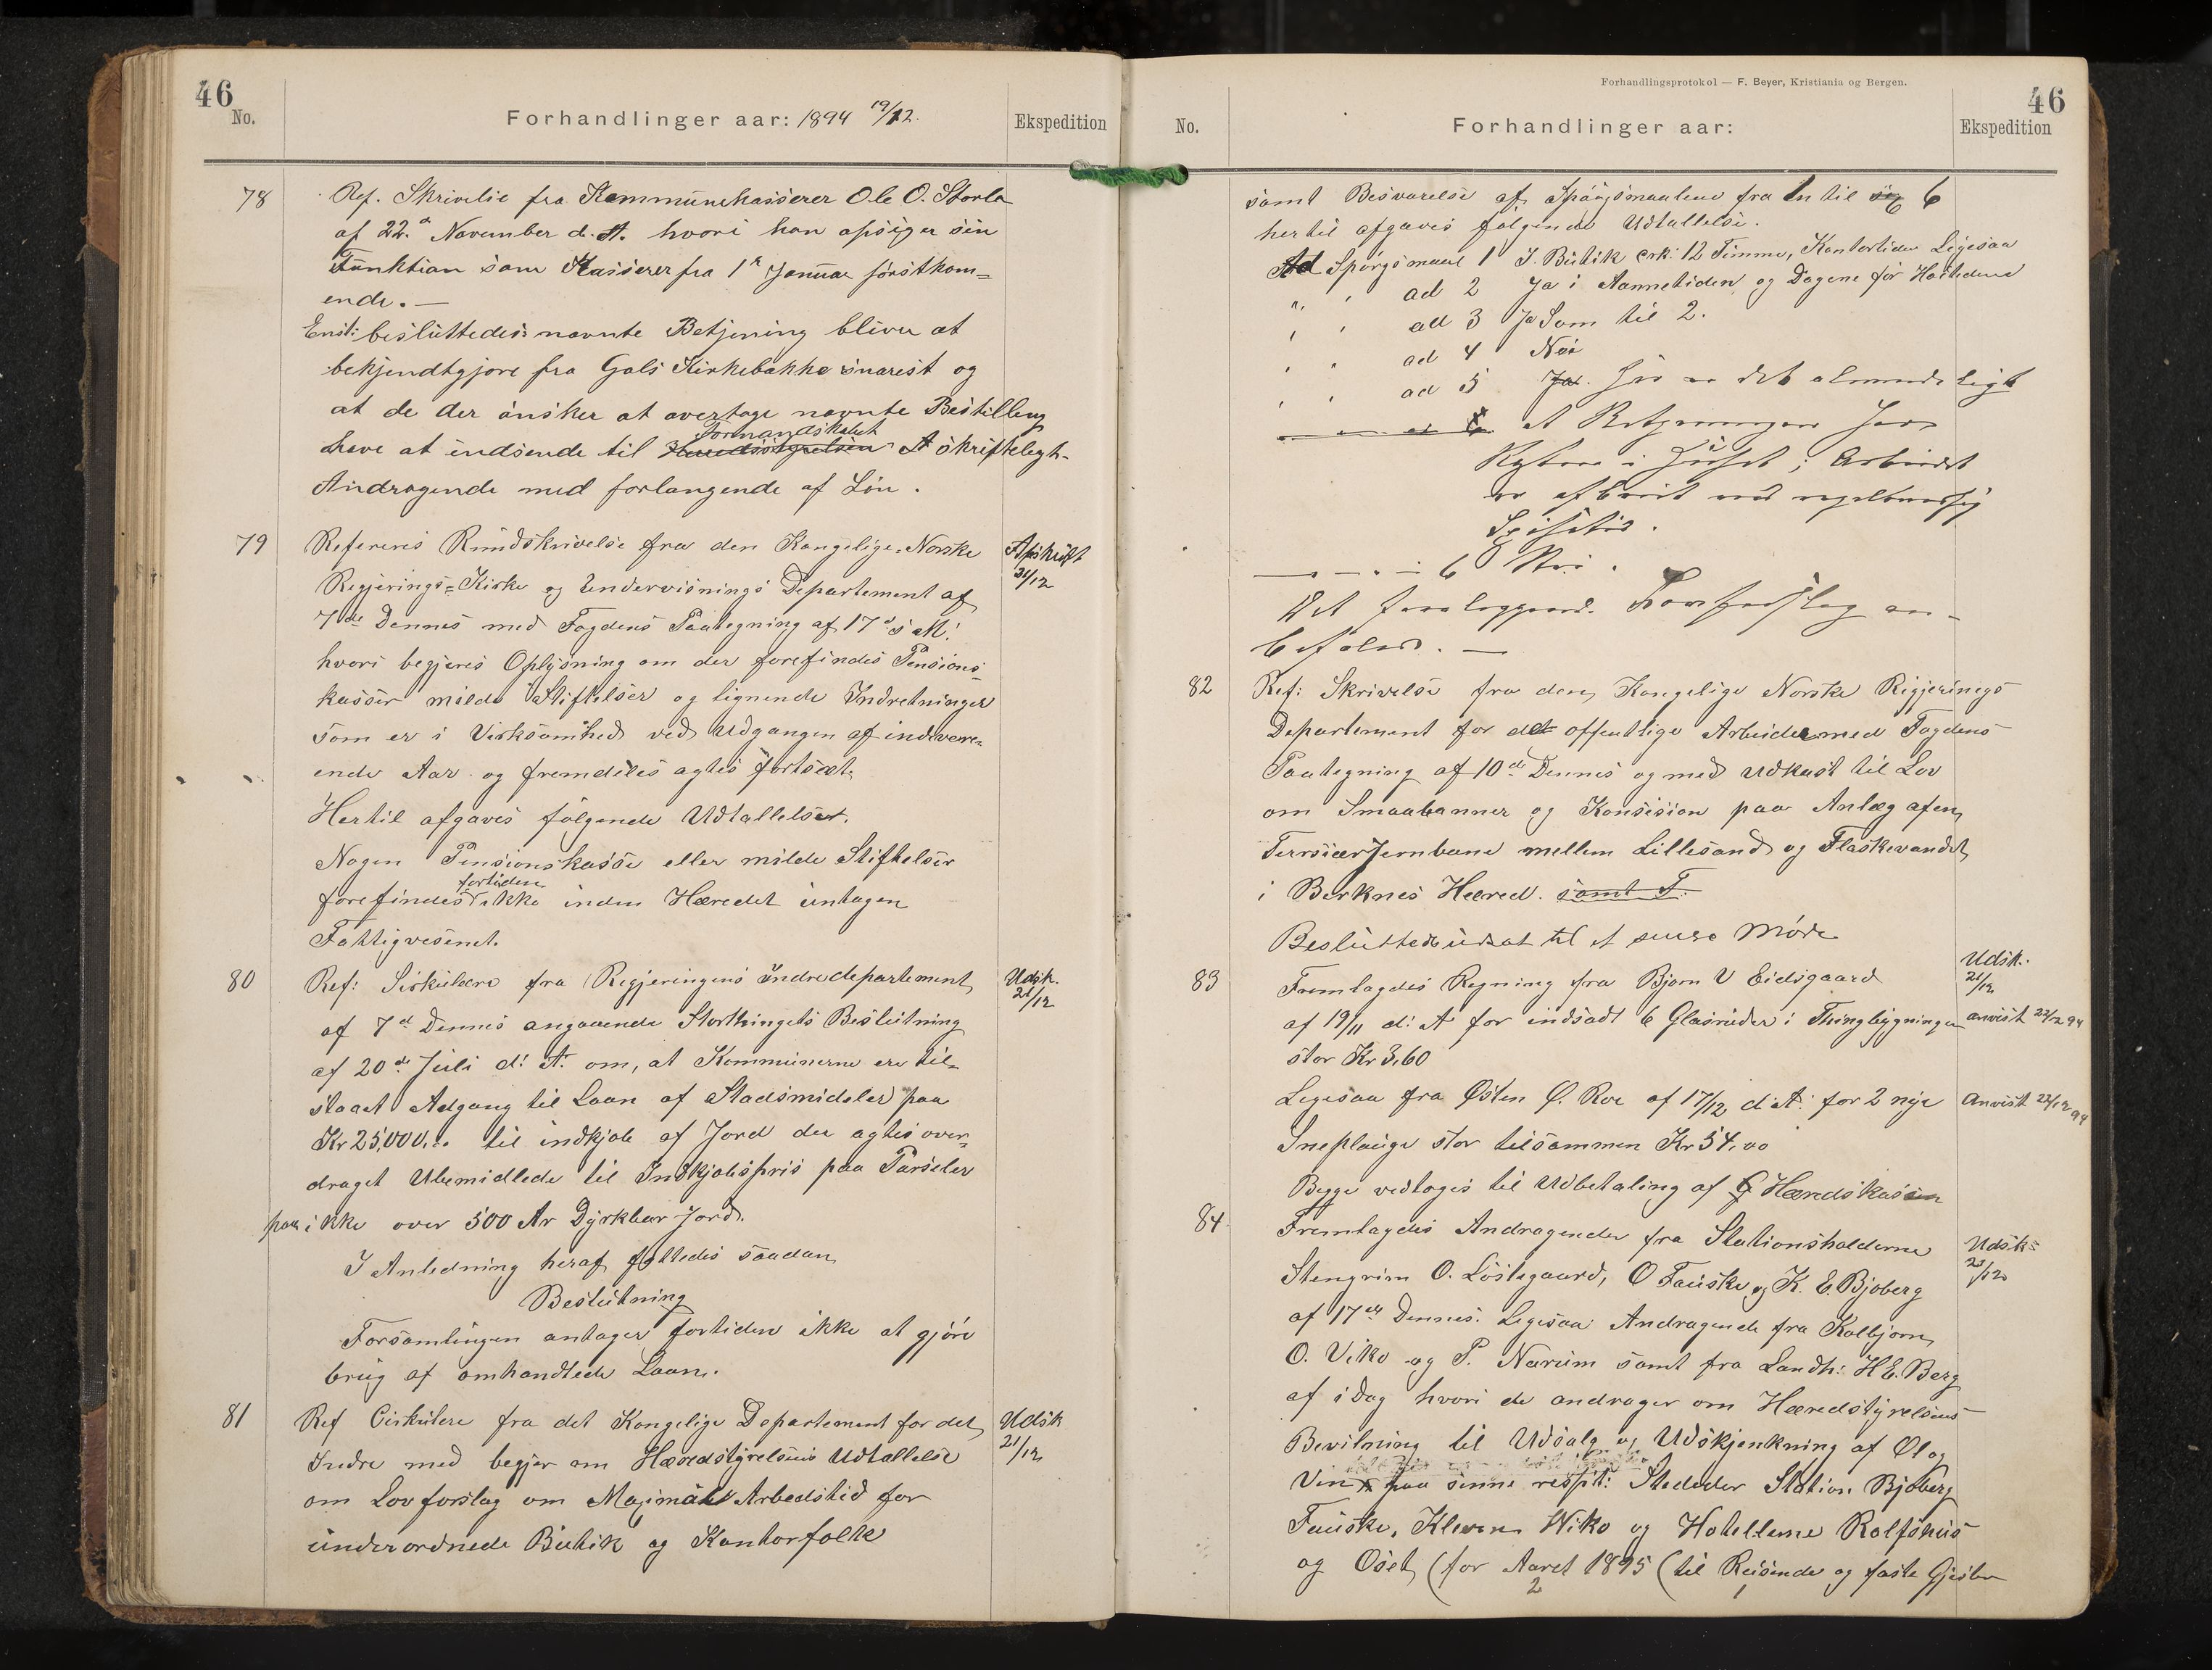 46
No.
Forhandlinger aar: 1894 19/12.
Ekspedition
78
Ref. Skrivelse fra Kommunekasserer Ole O. Storla
af 22.d November d. A. hvori han opsiger sin
Funktion som Kasserer fra 1ste Januar förstkom=
ende. —
Enst: besluttedes nævnte Betjening bliver at
bekjendtgjøre fra Gols Kirkebakke snarest og
at de der önsker at overtage nævnte Bestilling
have at indsende til Herredsstyrelsen Formandskabet skriftelegh-
Andragende med forlangende af Lön.
79
Refereres Rundskrivelse fra den Kongelige Norske
Apskrift
21/12
Regjerings=Kirke og Undervisnings Departement af
7de Dennes med Fogdens Paategning af 17d s M:
hvori begjeres Oplysning om der forefindes Pensions-
kasser milde Stiftelser og lignende Indretninger
som er i Virksomhed ved Udgangen af indevære-
ende Aar og fremdeles agtes fortsæt.
Hertil afgaves fölgende Udtallelse.
Nogen Pensionskasse eller milde Stiftelser
forefindes fortiden ikke inden Hæredet untagen
Fattigvesenet.
80
Ref: Sirkulære fra Regjeringens Indredepartement
Udsk.
21/12
af 7d Dennes angaaende Storthingets Beslutning
af 20de Juli d: A: om, at Kommunerne ere til-
staaet Adgang til Laan af Stadsmideler paa
Kr 25,000,00 til indkjøb af Jord der agtes over-
draget Ubemidlede til Indkjøbspris paa Parseler
paa ikke over 500 Ar Dyrkbar Jord.
I Anledning heraf fattedes saadan
Beslutning
Forsamlingen antager fortiden ikke at gjöre
brug af omhandlede Laan.
81
Ref Cirkulere fra det Kongelige Departement for det
Udsk
21/12
Indre med begjær om Hæredstyrelsens Udtallelse
om Lovforslag om Maximal Arbedstid for
underordnede Butik og Kontorfolk
Forhandlingsprotokol — F. Beyer, Kristiania og Bergen.
46
No.
Forhandlinger aar:
Ekspedition
samt Besvarelse af Spörgsmaalene fra 1n til 6
hertil afgaves fölgende Udtallelse.
Ad Spörgsmaal 1 I Butik cirk: 12 Timme, Kontortiden Ligesaa
" " ad 2 Ja i Aannetiden og Dagene för Høitidene
" " ad 3 Ja Som til 2.
" " ad 4 Nei
" " ad 5 Ja. Her er det almindeligt
at Betjeningen har
Kosten i Huset; Arbeidet
er afbrudt ved regelmæssig
Spisetid.
— — — 6 Nei.
Det foreliggende Lovforslag an-
befales. —
82
Ref: Skrivelse fra den Kongelige Norske Regjerings
Departement for det offentlige Arbeide med Fogdens
Paategning af 10de Dennes og med Udkast til Lov
om Smaabanner og Konsesion paa Anlæg af en
Terrsiær Jernbane mellem Lillesand og Flaskevandet
i Berknes Hæred. samt F.
Besluttedes udsat til et senere Möde
83
Fremlagdes Regning fra Bjørn V Eidsgaard
Udsk.
21/12
af 19/11 d: A for indsadt 6 Glasruder i Thingbygningen
anvist 22/12 94
stor Kr 3,60
Legesaa fra Østen Ø. Roe af 17/12 d. A: for 2 nye
Anvist 22/12 94
Sneplauge stor tilsammen Kr 54,00
Begge vedtoges til Udbetaling af Hæredskassen
84
Fremlagdes Andragender fra Stationsholderne
Udsk
21/12
Stengrim O. Löstegaard, O Fauske og K. E. Bjöberg
af 17de Dennes. Legesaa Andragende fra Kolbjörn
O. Viko og P. Nærum samt fra Landh: H E. Berg
af i Dag hvori de andrager om Hæredstyrelsens
Bevilning til Udsalg og Udskjenkning af Öl og
Vin paa sinne respt: Steder Station Bjöberg
Fauske, Kleven Wiko og Hotellerne Rolfshus
og Öset (for Aaret 1895 (til Reisende og faste Gjester
2 1